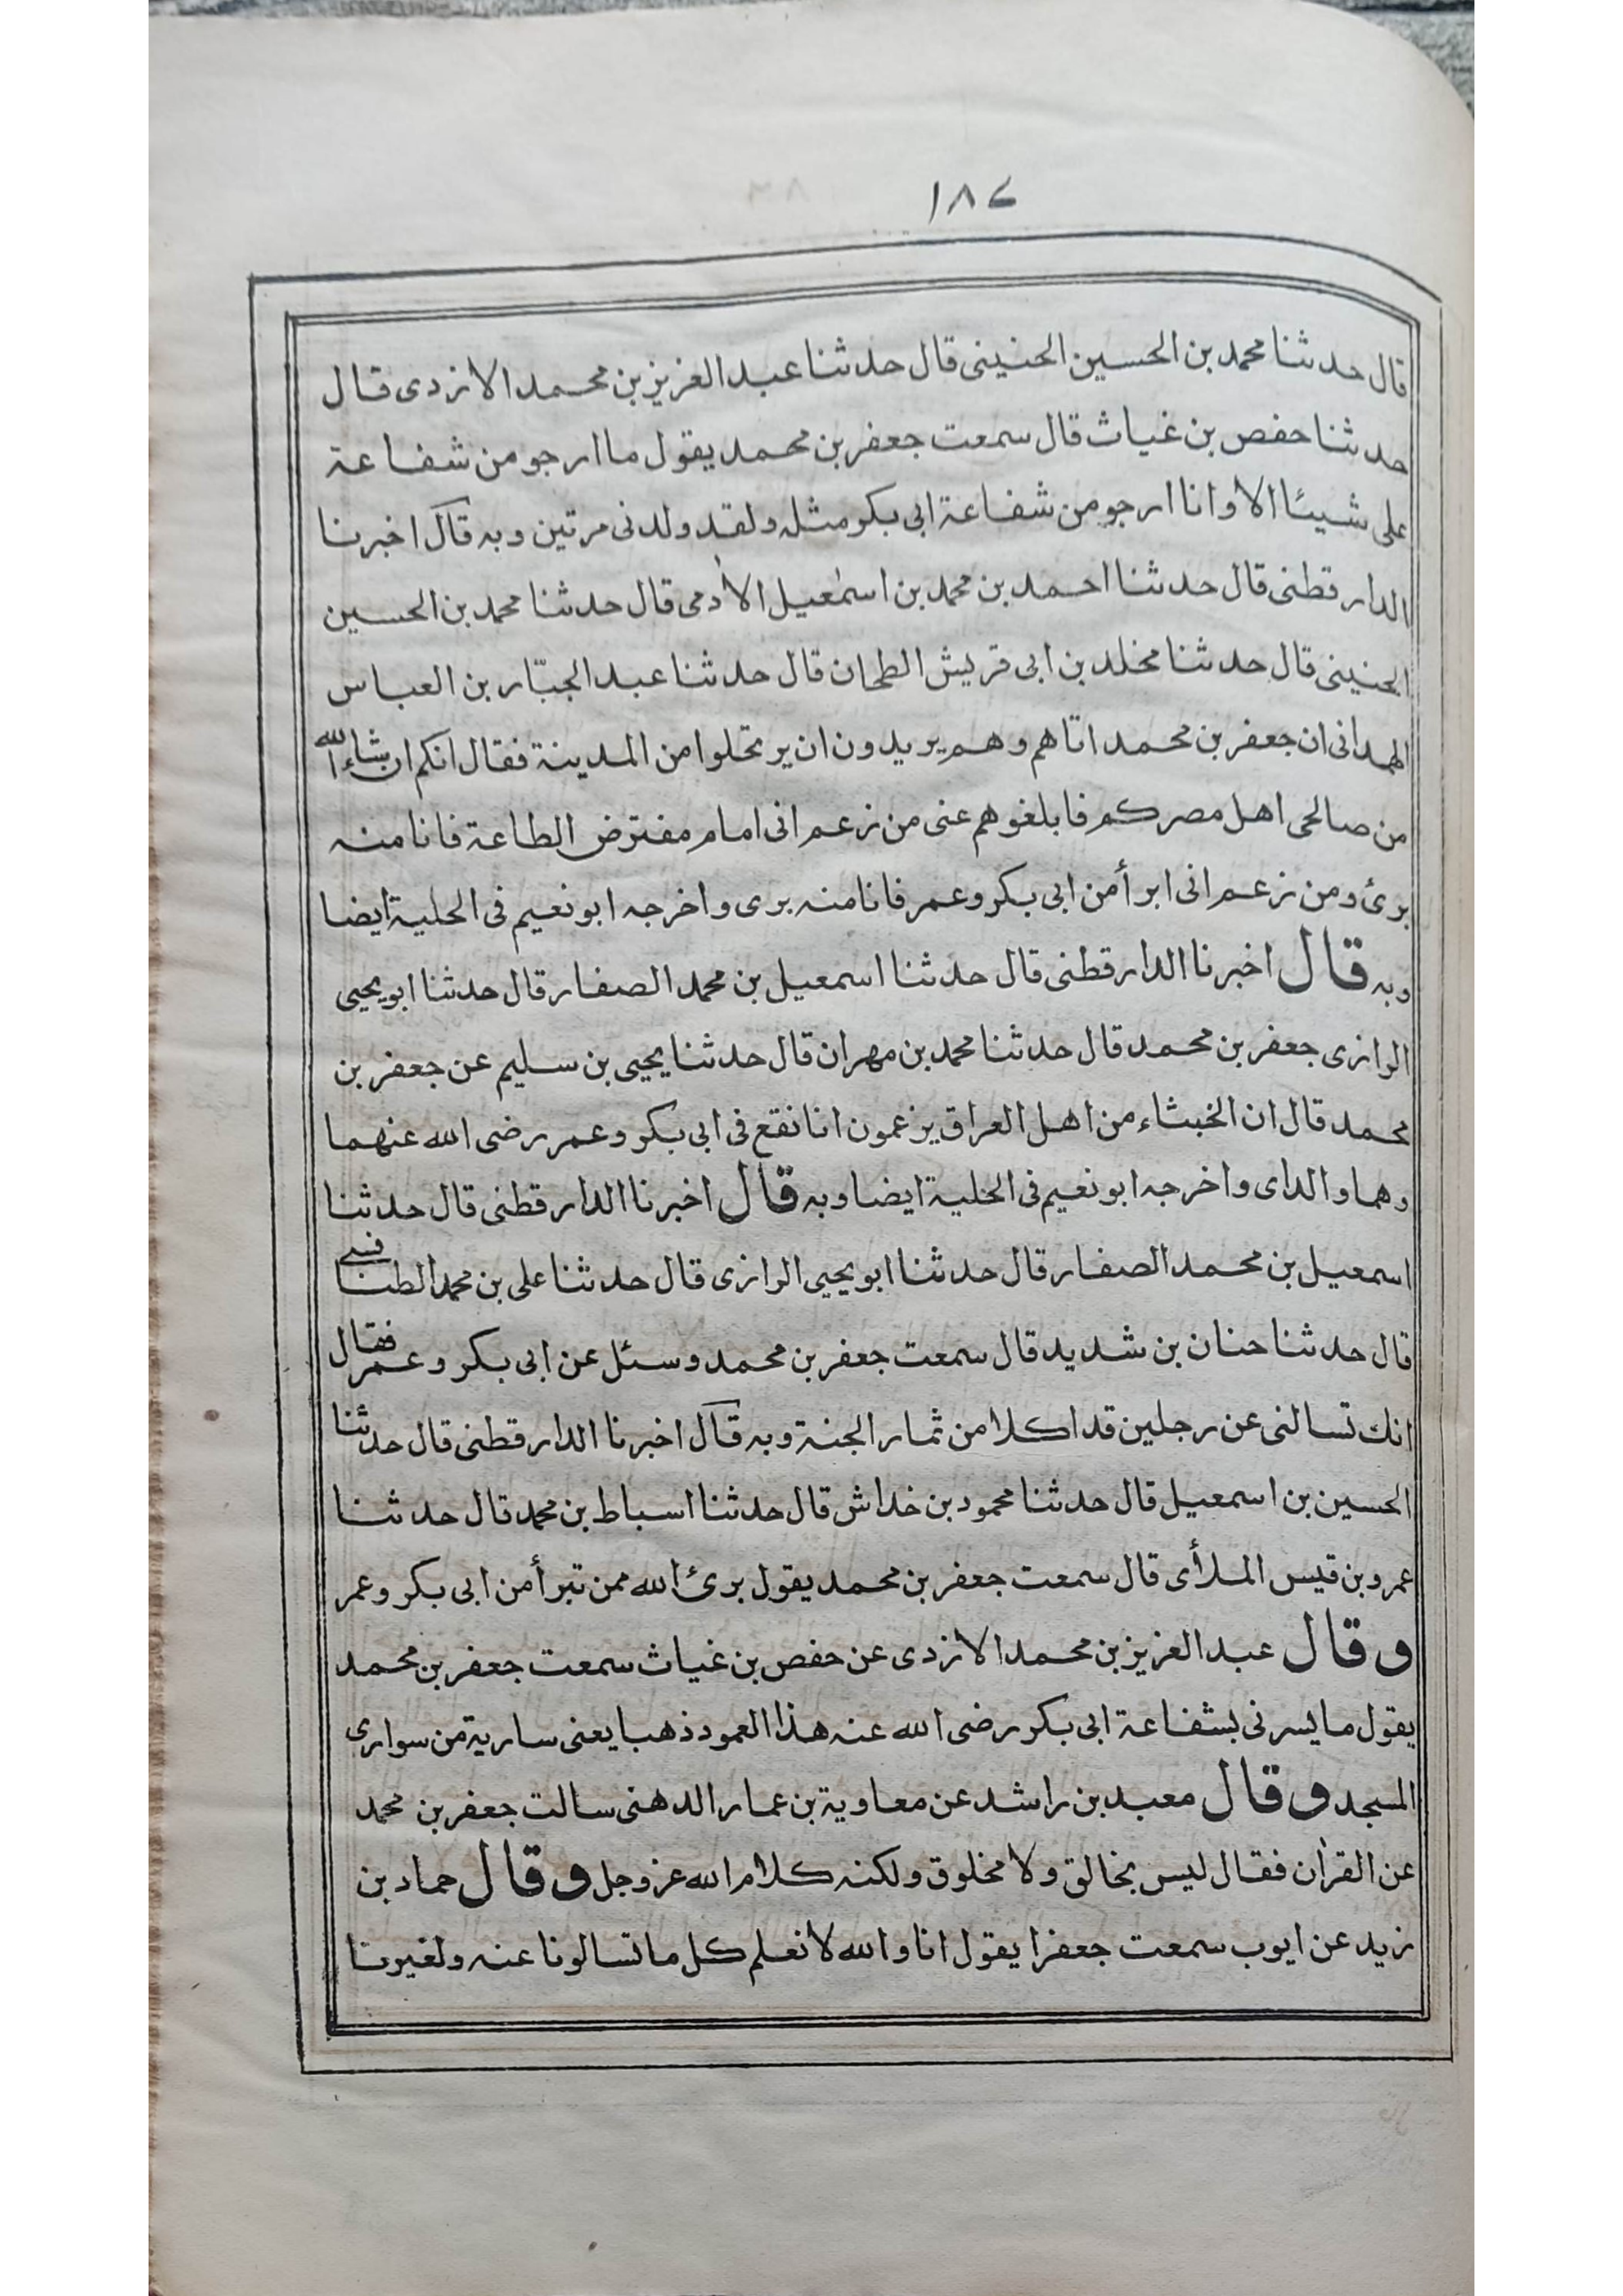 ١٨٤
قال حدثنا محمد بن الحسين الحنيني قال حدثنا عبد العزيز بن محمد الازدى قال
حدثنا حفص بن غياث قال سمعت جعفر بن محمد يقول ما ارجو من شفاعة
على شيئا الا وانا ارجو من شفاعة ابى بكر مثله ولقد ولدنى مرتين وبه قال اخبرنا
الدارقطنى قال حدثنا احمد بن محمد بن اسمٰعيل الاٰدمى قال حدثنا محمد بن الحسين
الحنينى قال حدثنا مخلد بن ابى قريش الطحان قال حدثنا عبد الجبّار بن العباس
الهمدانى ان جعفر بن محمد اتاهم وهم يريدون ان يرتحلوا من المدينة فقال انكم ان شاء الله
من صالحى اهل مصركم فابلغوهم عنى من زعم انى امام مفترض الطاعة فانا منه
برئ ومن زعم انى ابرأ من ابى بكر وعمر فانا منه برى واخرجه ابو نعيم فى الحلية ايضا
وبه قال اخبرنا الدارقطنى قال حدثنا اسمعيل بن محمد الصفار قال حدثنا ابو يحيى
الرازى جعفر بن محمد قال حدثنا محمد بن مهران قال حدثنا يحيى بن سليم عن جعفر بن
محمد قال ان الخبثاء من اهل العراق يزعمون انا نقع فى ابى بكر وعمر رضى الله عنهما
وهما والداى واخرجه ابو نعيم فى الحلية ايضا وبه قال اخبرنا الدارقطنى قال حدثنا
اسمعيل بن محمد الصفار قال حدثنا ابو يحيى الرازى قال حدثنا على بن محمد الطنافسے
قال حدثنا حنان بن شديد قال سمعت جعفر بن محمد وسئل عن ابى بكر وعمر فقال
انك تسالنى عن رجلين قد اكلا من ثمار الجنة وبه قال اخبرنا الدارقطنى قال حدثنا
الحسين بن اسمعيل قال حدثنا محمود بن خداش قال حدثنا اسباط بن محمد قال حدثنا
عمرو بن قيس الملأى قال سمعت جعفر بن محمد يقول برئ الله ممن تبرأ من ابى بكر وعمر
وقال عبد العزيز بن محمد الازدى عن حفص بن غياث سمعت جعفر بن محمد
يقول ما يسرنى بشفاعة ابى بكر رضى الله عنه هذا العمود ذهبا يعنى سارية من سوارى
المسجد وقال معبد بن راشد عن معاوية بن عمار الدهنى سالت جعفر بن محمد
عن القرٰان فقال ليس بخالق ولا مخلوق ولكنه كلام الله عز وجل وقال حماد بن
زيد عن ايوب سمعت جعفرا يقول انا والله لا نعلم كل ما تسالونا عنه ولغيرنا